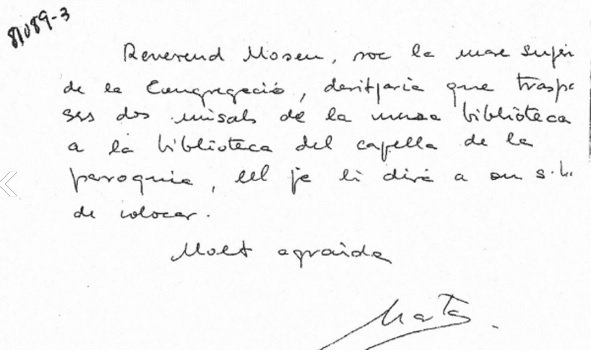 81089-3
Reverend Mosen, soc la mare super
de la Congregació, desitjaria que traspa
ses dos misals de la meva biblioteca
a la biblioteca del capella de la
paroquia, ell je li dirá a on s.h.
de colocar.
Molt agraida
Mata.